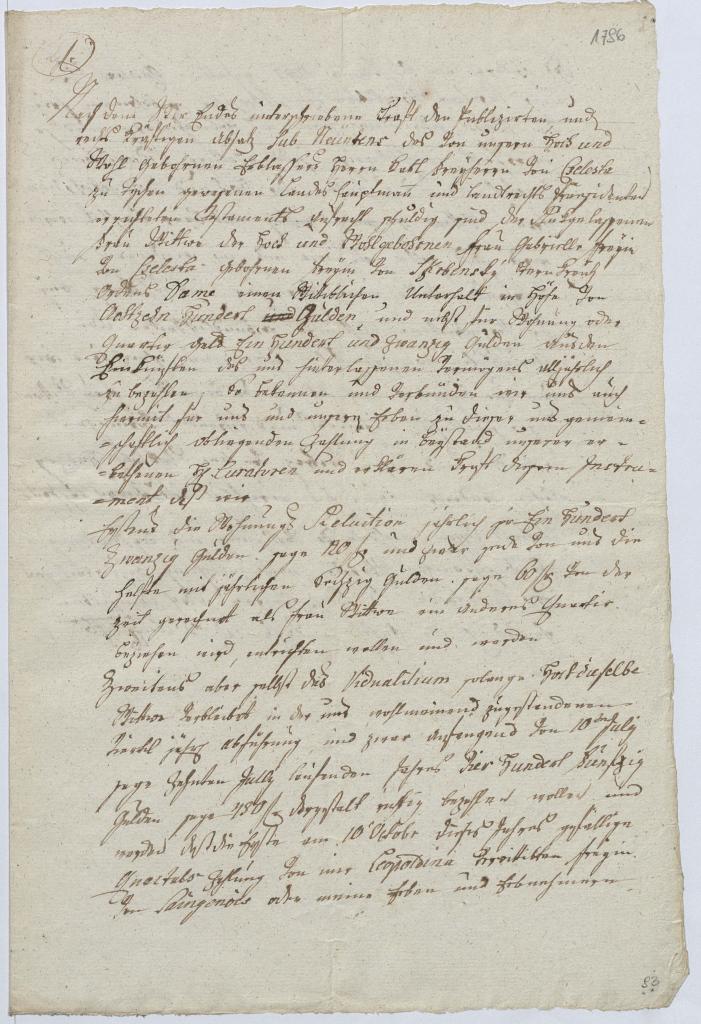 1.
1796
Nach dem wir Endes unterschriebene Kraft des Publizirten und
rechts kräftigen Absatz Sub Neuntens des von unsern Hoch und
Wohl Gebohrnen Erblassers Herrn Karl Freyherrn von Czelesta
zu gewesenen Landes Hauptmann und Landrechts Praesidenten
errichteten Testaments schuldig sind der
Frau Wittwe der Hoch und Wohlgebohrnen Frau Gabrielle Freyin
von Czelesta gebohrnen Freyin von Skrbensky Stern Kreutz
Ordens Dame einen Wittiblichen Unterhalt in Höhe von
Achtzehn Hundert Gulden und nebst für Wohnung oder
Quartir Geld Ein Hundert und Zwanzig Gulden aus den
Einkünften des uns hinterlassenen Vermögens alljährlich
zu bezahlen, So bekennen und verbünden wir uns auch
hiermit für uns und unsere Erben zu dieser uns gemein-
-schaftlich obliegenden Zahlung in Beystand unserer er-
-bethenen Curatoren und erklären Kraft dieses Instru-
-ment daß wir
Erstens die Wohnungs Reluition jährlich pr Ein Hundert
Zwanzig Gulden sage 120 f und zwar jede von uns die
Helfte mit jährlichen Sechzig Gulden sage 60 f von der
Zeit gerechnet als Frau Wittwe ein anderes Quartir
beziehen wird, entrichten wollen und werden
Zweitens aber selbst das Vidualitium solange Hochdieselbe
Wittwe verbleibet in der uns wohlmeinend zugestandenen
Viertl jährl Abführung, und zwar anfangend von 10ten July
sage Zehnten July laufenden Jahres Vier Hundert Fünfzig
Gulden sage 450 f dergestalt richtig bezahlen wollen und
werden daß die Erste am 10 Octobr dieses Jahres gefällige
Quartals Zahlung von mir Leopoldina Freyin
von oder meine Erben und Erbnehmern
83